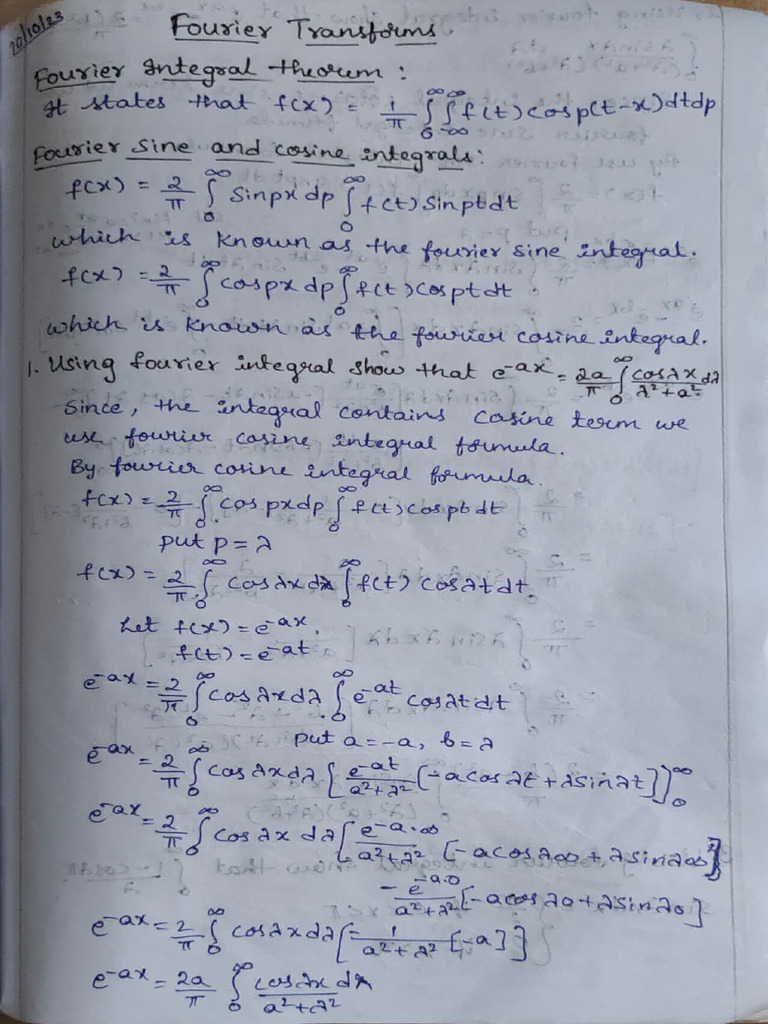 20/10/23
Fourier Transforms
Fourier Integral theorem :
It states that f(x) = 1/π ∫₀^∞ ∫₋∞^∞ f(t) cos p(t-x) dt dp
Fourier sine and cosine integrals:
f(x) = 2/π ∫₀^∞ Sinpx dp ∫₀^∞ f(t) Sinpt dt
which is known as the fourier sine integral.
f(x) = 2/π ∫₀^∞ cospx dp ∫₀^∞ f(t) cospt dt.
which is known as the fourier cosine integral.
1. Using fourier integral show that e^-ax = 2a/π ∫₀^∞ cosλx/λ²+a² dλ
Since, the integral contains cosine term we
use fourier cosine integral formula.
By fourier cosine integral formula.
f(x) = 2/π ∫₀^∞ cos pxdp ∫₀^∞ f(t) cospt dt
put p = λ
f(x) = 2/π ∫₀^∞ cosλx dλ ∫₀^∞ f(t) cosλt dt.
Let f(x) = e^-ax.
f(t) = e^-at
e^-ax = 2/π ∫₀^∞ cos λx dλ ∫₀^∞ e^-at cosλt dt
put a = -a, b = λ
e^-ax = 2/π ∫₀^∞ cos λx dλ [e^-at/a²+λ² [-a cos λt + λ sin λt]]₀^∞
e^-ax = 2/π ∫₀^∞ cos λx dλ [e^-a.∞/a²+λ² [-a cos λ∞ + λ sin λ∞]
- e^-a.0/a²+λ² [-a cos λ0 + λ sin λ0]
e^-ax = 2/π ∫₀^∞ cos λx dλ [-1/a²+λ² [-a]]
e^-ax = 2a/π ∫₀^∞ cosλx dλ/a²+λ²